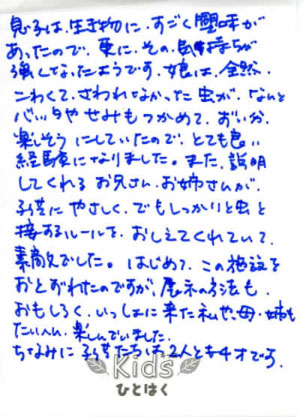 息子は、生き物に、すごく興味が
あったので、更に、その気持ちが
強くなったようです。娘は、全然
こわくて、さわれなかった虫が、なんと
バッタやせみもつかめて、おい分、
楽しそうにしていたので、とても良い
経験になりました。また、説明
してくれるお兄さん、お姉さんが、
子供にやさしく、でもしっかりと虫と
接するルールを、おしえてくれていて、
素敵でした。はじめて、この施設を
おとずれたのですが、展示の方法も、
おもしろく、いっしょに来た私や、母・姉も
たいへん、楽しんでいました。
ちなみに子供たちは、2人とも4才です。
Kids
ひとはく